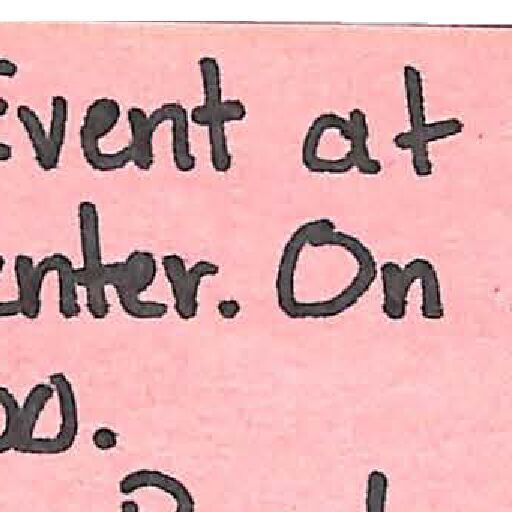 Event at
enter. On
oo.